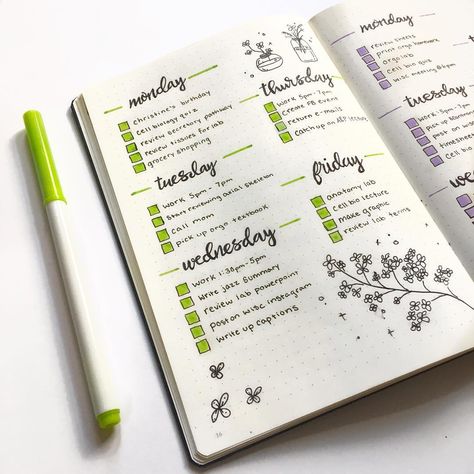 monday
christine's birthday
cell biology quiz
review secretory pathway
review tissues for lab
grocery shopping
tuesday
work 5pm - 7pm
start reviewing axial skeleton
call mom
pick up orgo textbook
wednesday
work 1:30pm-5pm
write jazz summary
review lab powerpoint
post on wisc instagram
write up captions
thursday
work 5pm-7pm
create FB event
return e-mails
catch up on
friday
anatomy lab
cell bio lecture
make graphic
review lab terms
36
monday
review sheets
print orgo homework
orgo lab
cell bio quiz
wisc meeting @ 6pm
tuesday
work 5pm
pick up